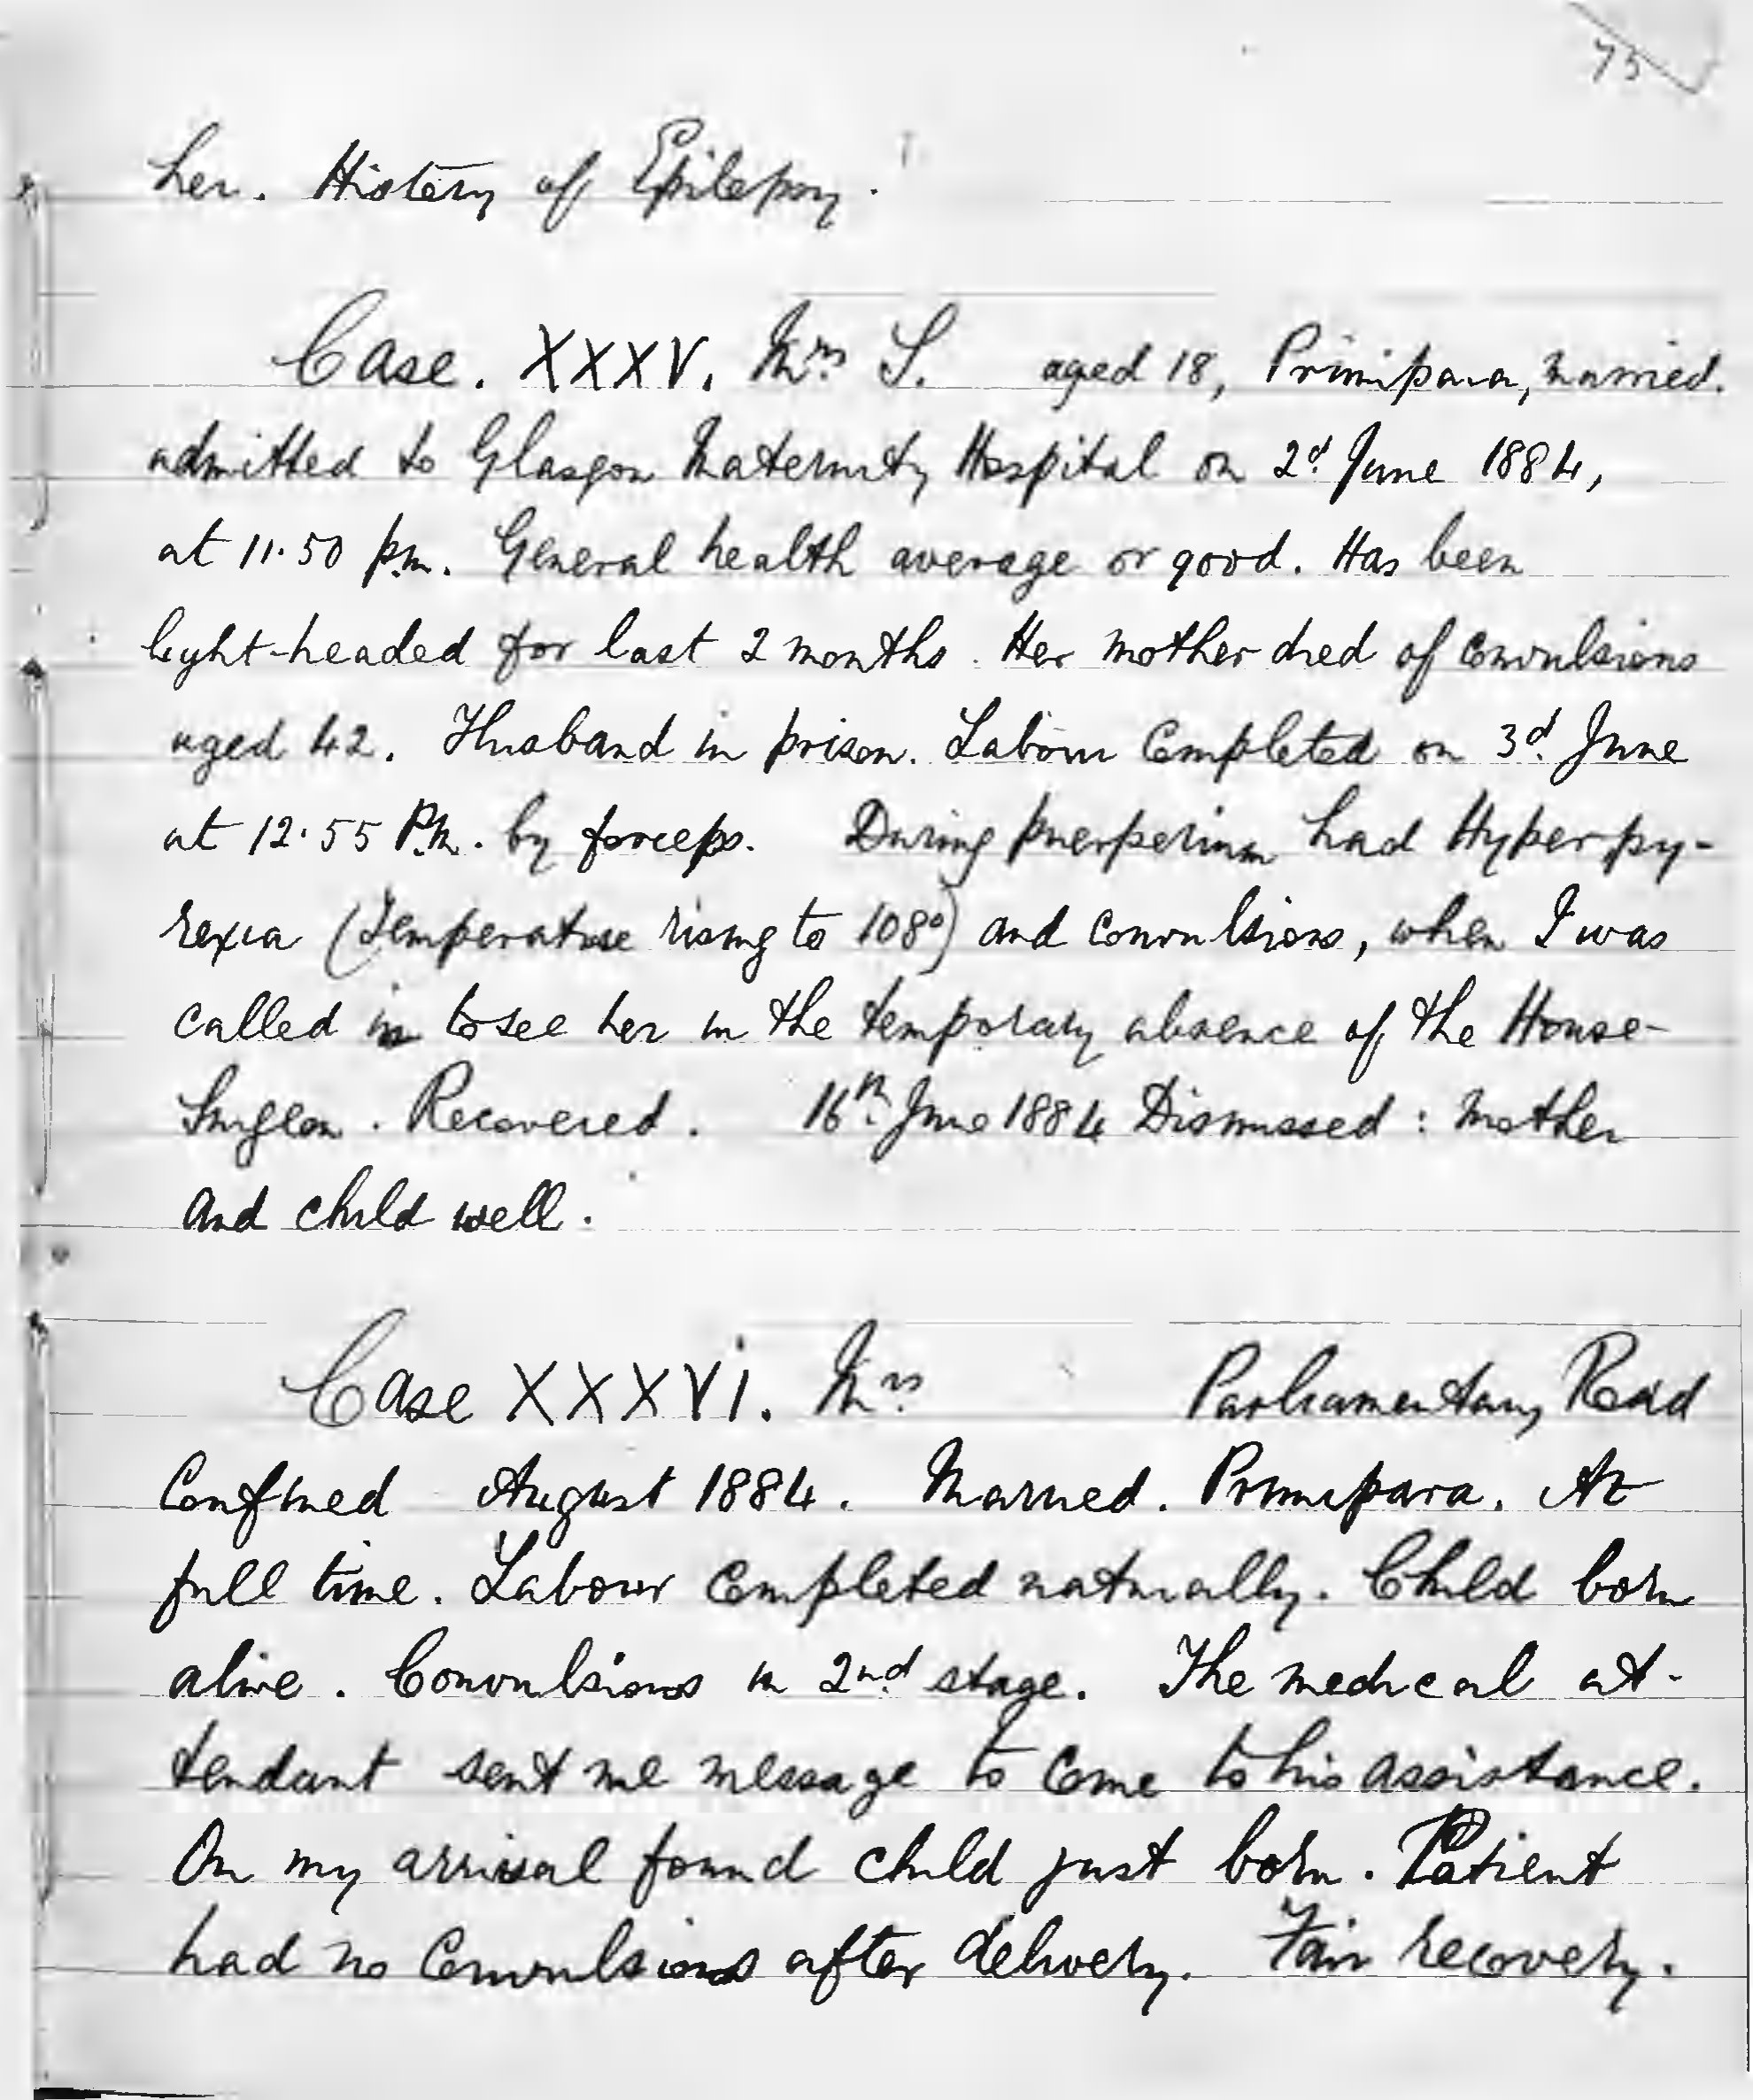 75
her. History of Epilepsy.
Case. XXXV. Mrs S. aged 18, Primipara, married.
admitted to Glasgow Maternity Hospital on 2d June 1884,
at 11.50 p.m. General health average or good. Has been
light-headed for last 2 months. Her mother died of convulsions
aged 42. Husband in prison. Labour completed on 3d June
at 12.55 P.M. by forceps. During puerperium had Hyperpy-
rexia (temperature rising to 108°) and convulsions, when I was
called in to see her in the temporary absence of the House-
Surgeon. Recovered. 16th June 1884 Dismissed: Mother
and child well.
Case XXXVI. Mrs Parliamentary Road
Confined August 1884. Married. Primipara. At
full time. Labour completed naturally. Child born
alive. Convulsions in 2nd stage. The medical at-
tendant sent me message to come to his assistance.
On my arrival found child just born. Patient
had no convulsions after delivery. Fair recovery.